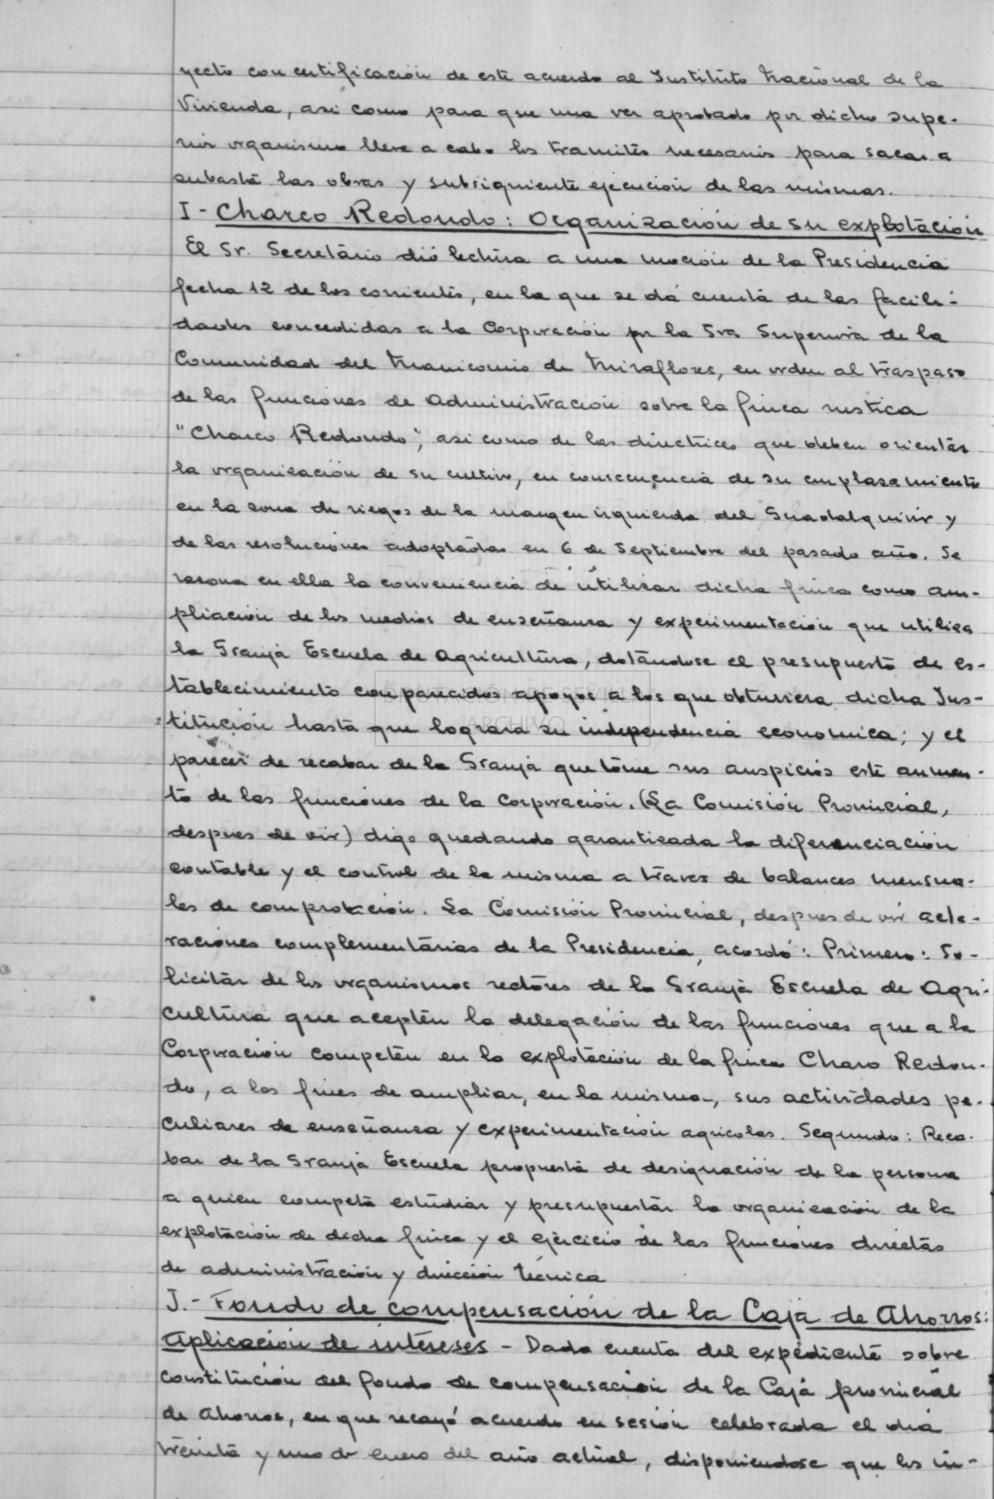 yecto con certificación de este acuerdo al Instituto Nacional de la
Vivienda, asi como para que una vez aprobado por dicho supe-
rior organismo lleve a cabo los tramites necesarios para sacar a
subasta las obras y subsiguiente ejecución de las mismas.
I - Charco Redondo: Organización de su explotación
El Sr. Secretario dió lectura a una moción de la Presidencia
fecha 12 de los corrientes, en la que se dá cuenta de las facili-
dades concedidas a la Corporación por la Sra Superiora de la
Comunidad del Manicomio de Miraflores, en orden al traspaso
de las funciones de administración sobre la finca rustica
"Charco Redondo", asi como de las directrices que deben orientar
la organización de su cultivo, en consecuencia de su emplazamiento
en la zona de riegos de la margen izquierda del Guadalquivir y
de las resoluciones adoptadas en 6 de Septiembre del pasado año. Se
razona en ella la conveniencia de utilizar dicha finca como am-
pliación de los medios de enseñanza y experimentación que utiliza
la Granja Escuela de Agricultura, dotándose el presupuesto de es-
tablecimiento con parecidos apoyos a los que obtuviera dicha Ins-
titución hasta que lograra su independencia economica; y el
parecer de recabar de la Granja que tome sus auspicios este aumen-
to de las funciones de la Corporación. (La Comisión Provincial,
despues de oir) digo quedando garantizada la diferenciación
contable y el control de la misma a traves de balances mensua-
les de comprobación. La Comisión Provincial, despues de oir acla-
raciones complementarias de la Presidencia, acordó: Primero: So-
licitar de los organismos rectores de la Granja Escuela de Agri-
cultura que acepten la delegación de las funciones que a la
Corporación competen en la explotación de la finca Charco Redon-
do, a los fines de ampliar, en la misma, sus actividades pe-
culiares de enseñanza y experimentación agricolas. Segundo: Reca-
bar de la Granja Escuela propuesta de designación de la persona
a quien competa estudiar y presupuestar la organización de la
explotación de dicha finca y el ejercicio de las funciones directas
de administración y dirección técnica
J.- Fondo de compensación de la Caja de Ahorros:
Aplicación de intereses - Dada cuenta del expediente sobre
constitución del fondo de compensación de la Caja provincial
de Ahorros, en que recayó acuerdo en sesión celebrada el dia
treinta y uno de enero del año actual, disponiendose que los in-
DIPUTACIÓN DE SEVILLA
ARCHIVO